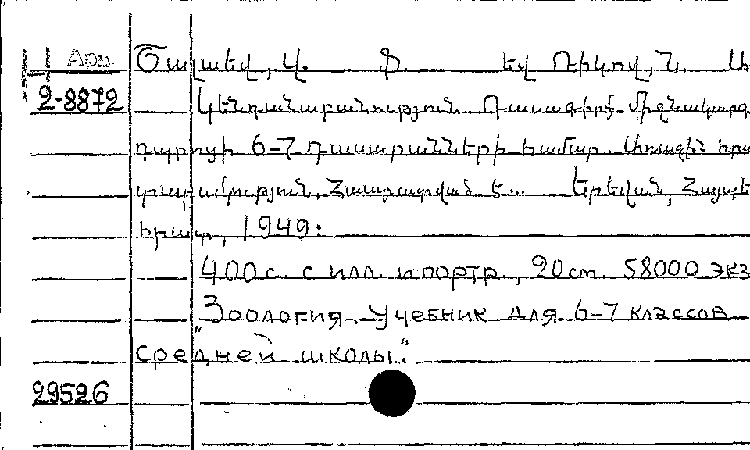 Арм. Ցալաեվ, Վ. Ֆ. եվ Ռիկով, Ն. Ա
2-8872 Կենդանաբանություն Դասագիրք միջնակարգ
դպրոցի 6-7 դասարանների համար. Առաջին հրա
տարակություն. Հաստատված է... Երեվան, Հայպե
հրատ, 1949:
400 с. с илл. и портр., 20 cm. 58000 экз
"Зоология. Учебник для 6-7 классов
средней школы."
29526